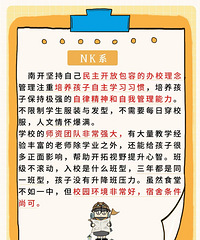 NK系
南开坚持自己民主开放包容的办校理念
管理注重培养孩子自主学习习惯，培养孩
子保持极强的自律精神和自我管理能力。
不限制学生服装与发型，不需要每日穿校
服，人文情怀爆满。
学校的师资团队非常强大，有大量教学经
验丰富的老师除学业之外，还能给孩子很
多正面影响，帮助开拓视野提升心智。班
级不滚动，入校是什么班型，三年都是同
一班型，孩子没有升降班压力。虽然食堂
不如一中，但校园环境非常好，宿舍条件
尚可。